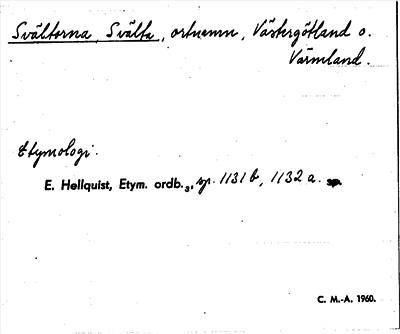 Svältorna, Svälta, ortnamn, Västergötland o.
Värmland.
Etymologi.
E. Hellquist, Etym. ordb.₃, sp. 1131 b, 1132 a.
C. M.-A. 1960.